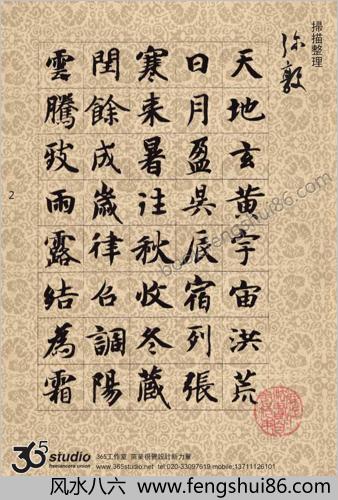 掃描整理
弥敦
天地玄黃宇宙洪荒
日月盈昃辰宿列張
寒来暑往秋收冬蔵
閏餘成歲律召調陽
雲騰致雨露結為霜
2
365studio
freelancers union
365工作室 商業視覺設計新力量
www.365studio.net tel:020-33097619 mobile:13711126101
风水八六 www.fengshui86.com